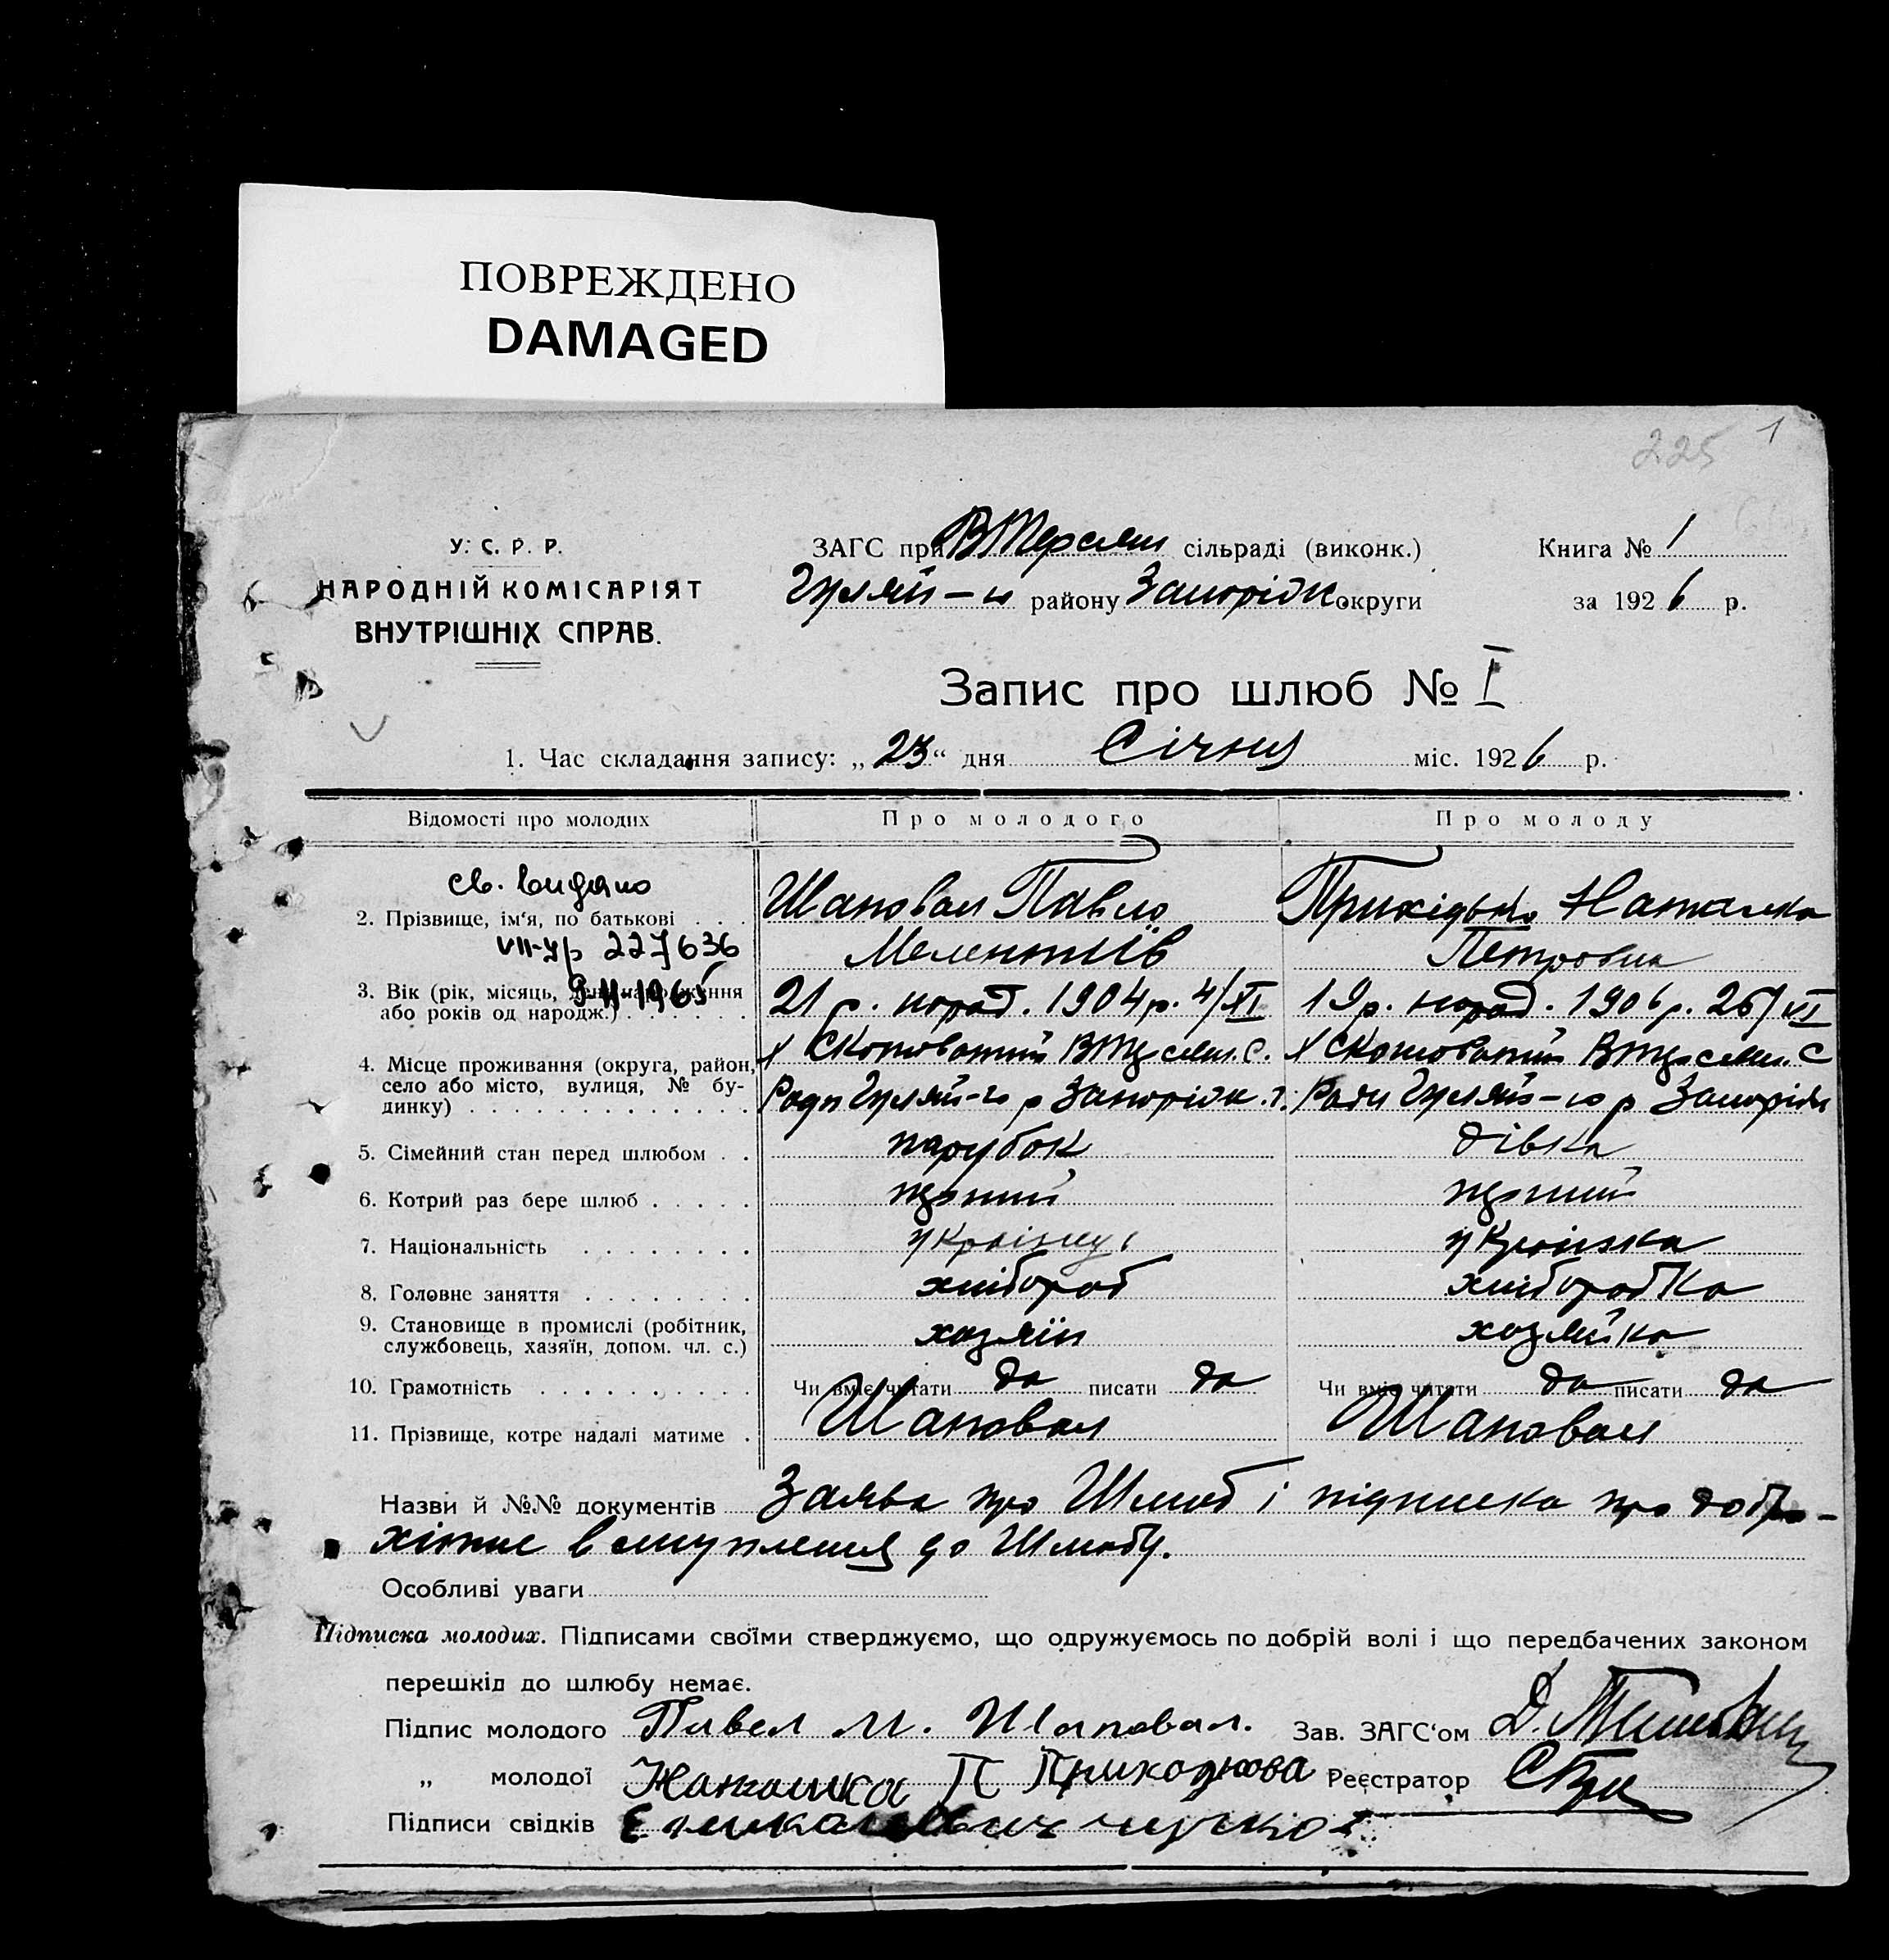 ПОВРЕЖДЕНО
DAMAGED
225 1
У. С. Р. Р.
НАРОДНІЙ КОМІСАРІЯТ
ВНУТРІШНІХ СПРАВ.
ЗАГС при ВТерсян сільраді (виконк.)
Гуляй-го району Запоріжк округи
Книга № 1
за 1926 р.
Запис про шлюб № I
1. Час складання запису: „23“ дня Січня міс. 1926 р.
Відомості про молодих Про молодого Про молоду
св. видано
2. Прізвище, ім‘я, по батькові . . . Шаповал Павло Прихідько Наталка
VII-УР 227636 Мелентіїв Петровна
3. Вік (рік, місяць, день народження або років од народж.) 21 р. норад. 1904 р. 4/XI 19 р. норад. 1906 р. 26/VI
9-II-1965
4. Місце проживання (округа, район, село або місто, вулиця, № будинку) х Скотоватий ВТерсян. С. х Скотоватий ВТерсян. С
Ради Гуляй-го р Запоріжк. Ради Гуляй-го р Запоріж
5. Сімейний стан перед шлюбом . . парубок дівка
6. Котрий раз бере шлюб . . . . . перший перший
7. Національність . . . . . . . . українець українка
8. Головне заняття . . . . . . . . хлібороб хліборобка
9. Становище в промислі (робітник, службовець, хазяїн, допом. чл. с.) хозяїн хозяйка
10. Грамотність . . . . . . . . . . Чи вміє читати да писати да Чи вміє читати да писати да
11. Прізвище, котре надалі матиме . Шаповал Шаповал
Назви й №№ документів Заява про Шлюб і підписка про добро-
хітне вступлення до Шлюбу.
Особливі уваги
Підписка молодих. Підписами своїми стверджуємо, що одружуємось по добрій волі і що передбачених законом
перешкід до шлюбу немає.
Підпис молодого Павел М. Шаповал. Зав. ЗАГС‘ом Д.
„ молодої Наталка П Приходкова Реєстратор
Підписи свідків